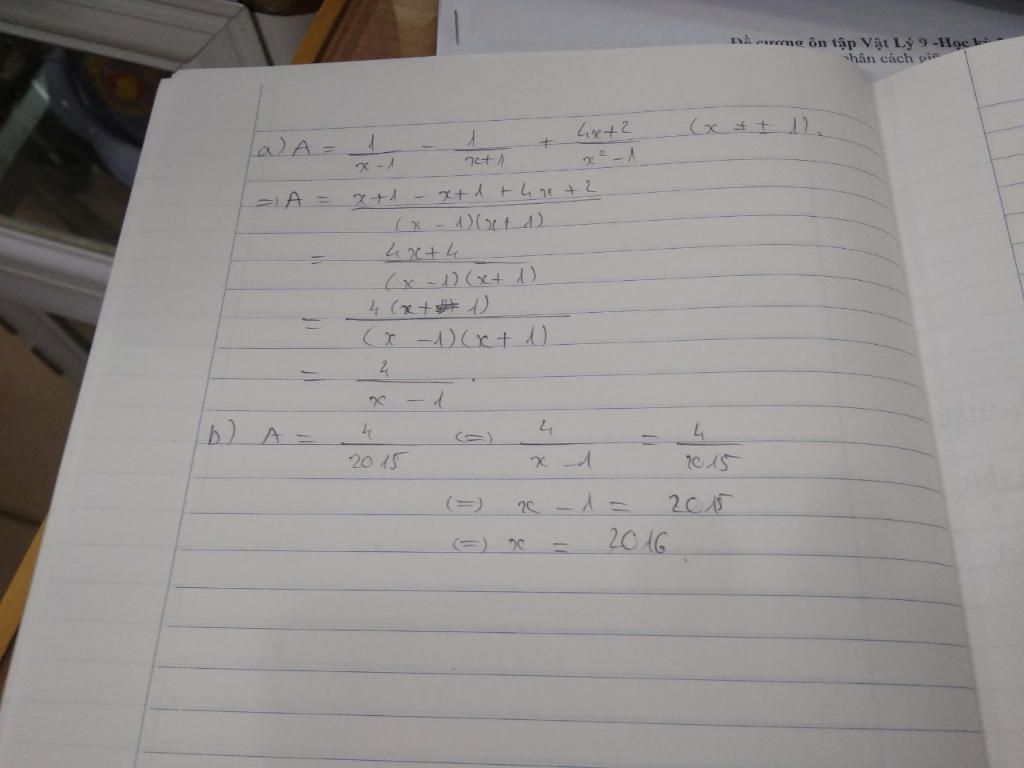 Đề cương ôn tập Vật Lý 9 -Học kì
phân cách giữ
a) A = 1/(x-1) - 1/(x+1) + (4x+2)/(x² - 1) (x ≠ ± 1).
=> A = (x+1 - x+1 + 4x + 2)/((x - 1)(x+1))
= (4x+4)/((x-1)(x+1))
= 4(x+1)/((x-1)(x+1))
= 4/(x-1).
b) A = 4/2015 (=) 4/(x-1) = 4/2015
(=) x - 1 = 2015
(=) x = 2016.